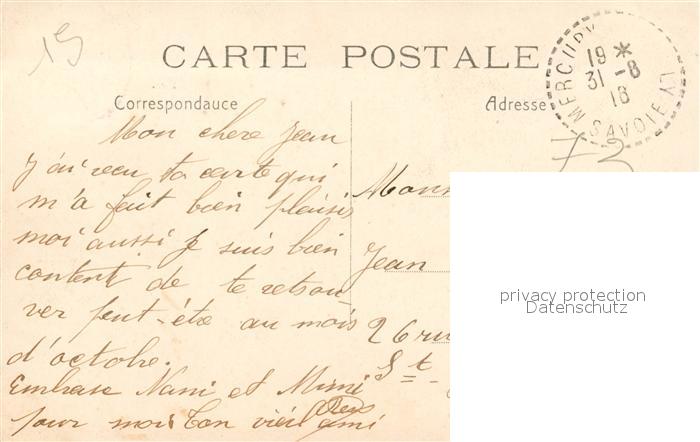 15
CARTE POSTALE
MERCURY SAVOIE
19 *
31 -8
18
Correspondauce
Adresse
73
Mon chere Jean
J'ai reçu ta carte qui
m'a fait bien plaisir
moi aussi je suis bien
content de te retrou
ver peut-être au mois
d'octobre.
Embrase Nani et Mimi
pour moi ton vieil ami
Mons
Jean
26 ru
St -
privacy protection
Datenschutz